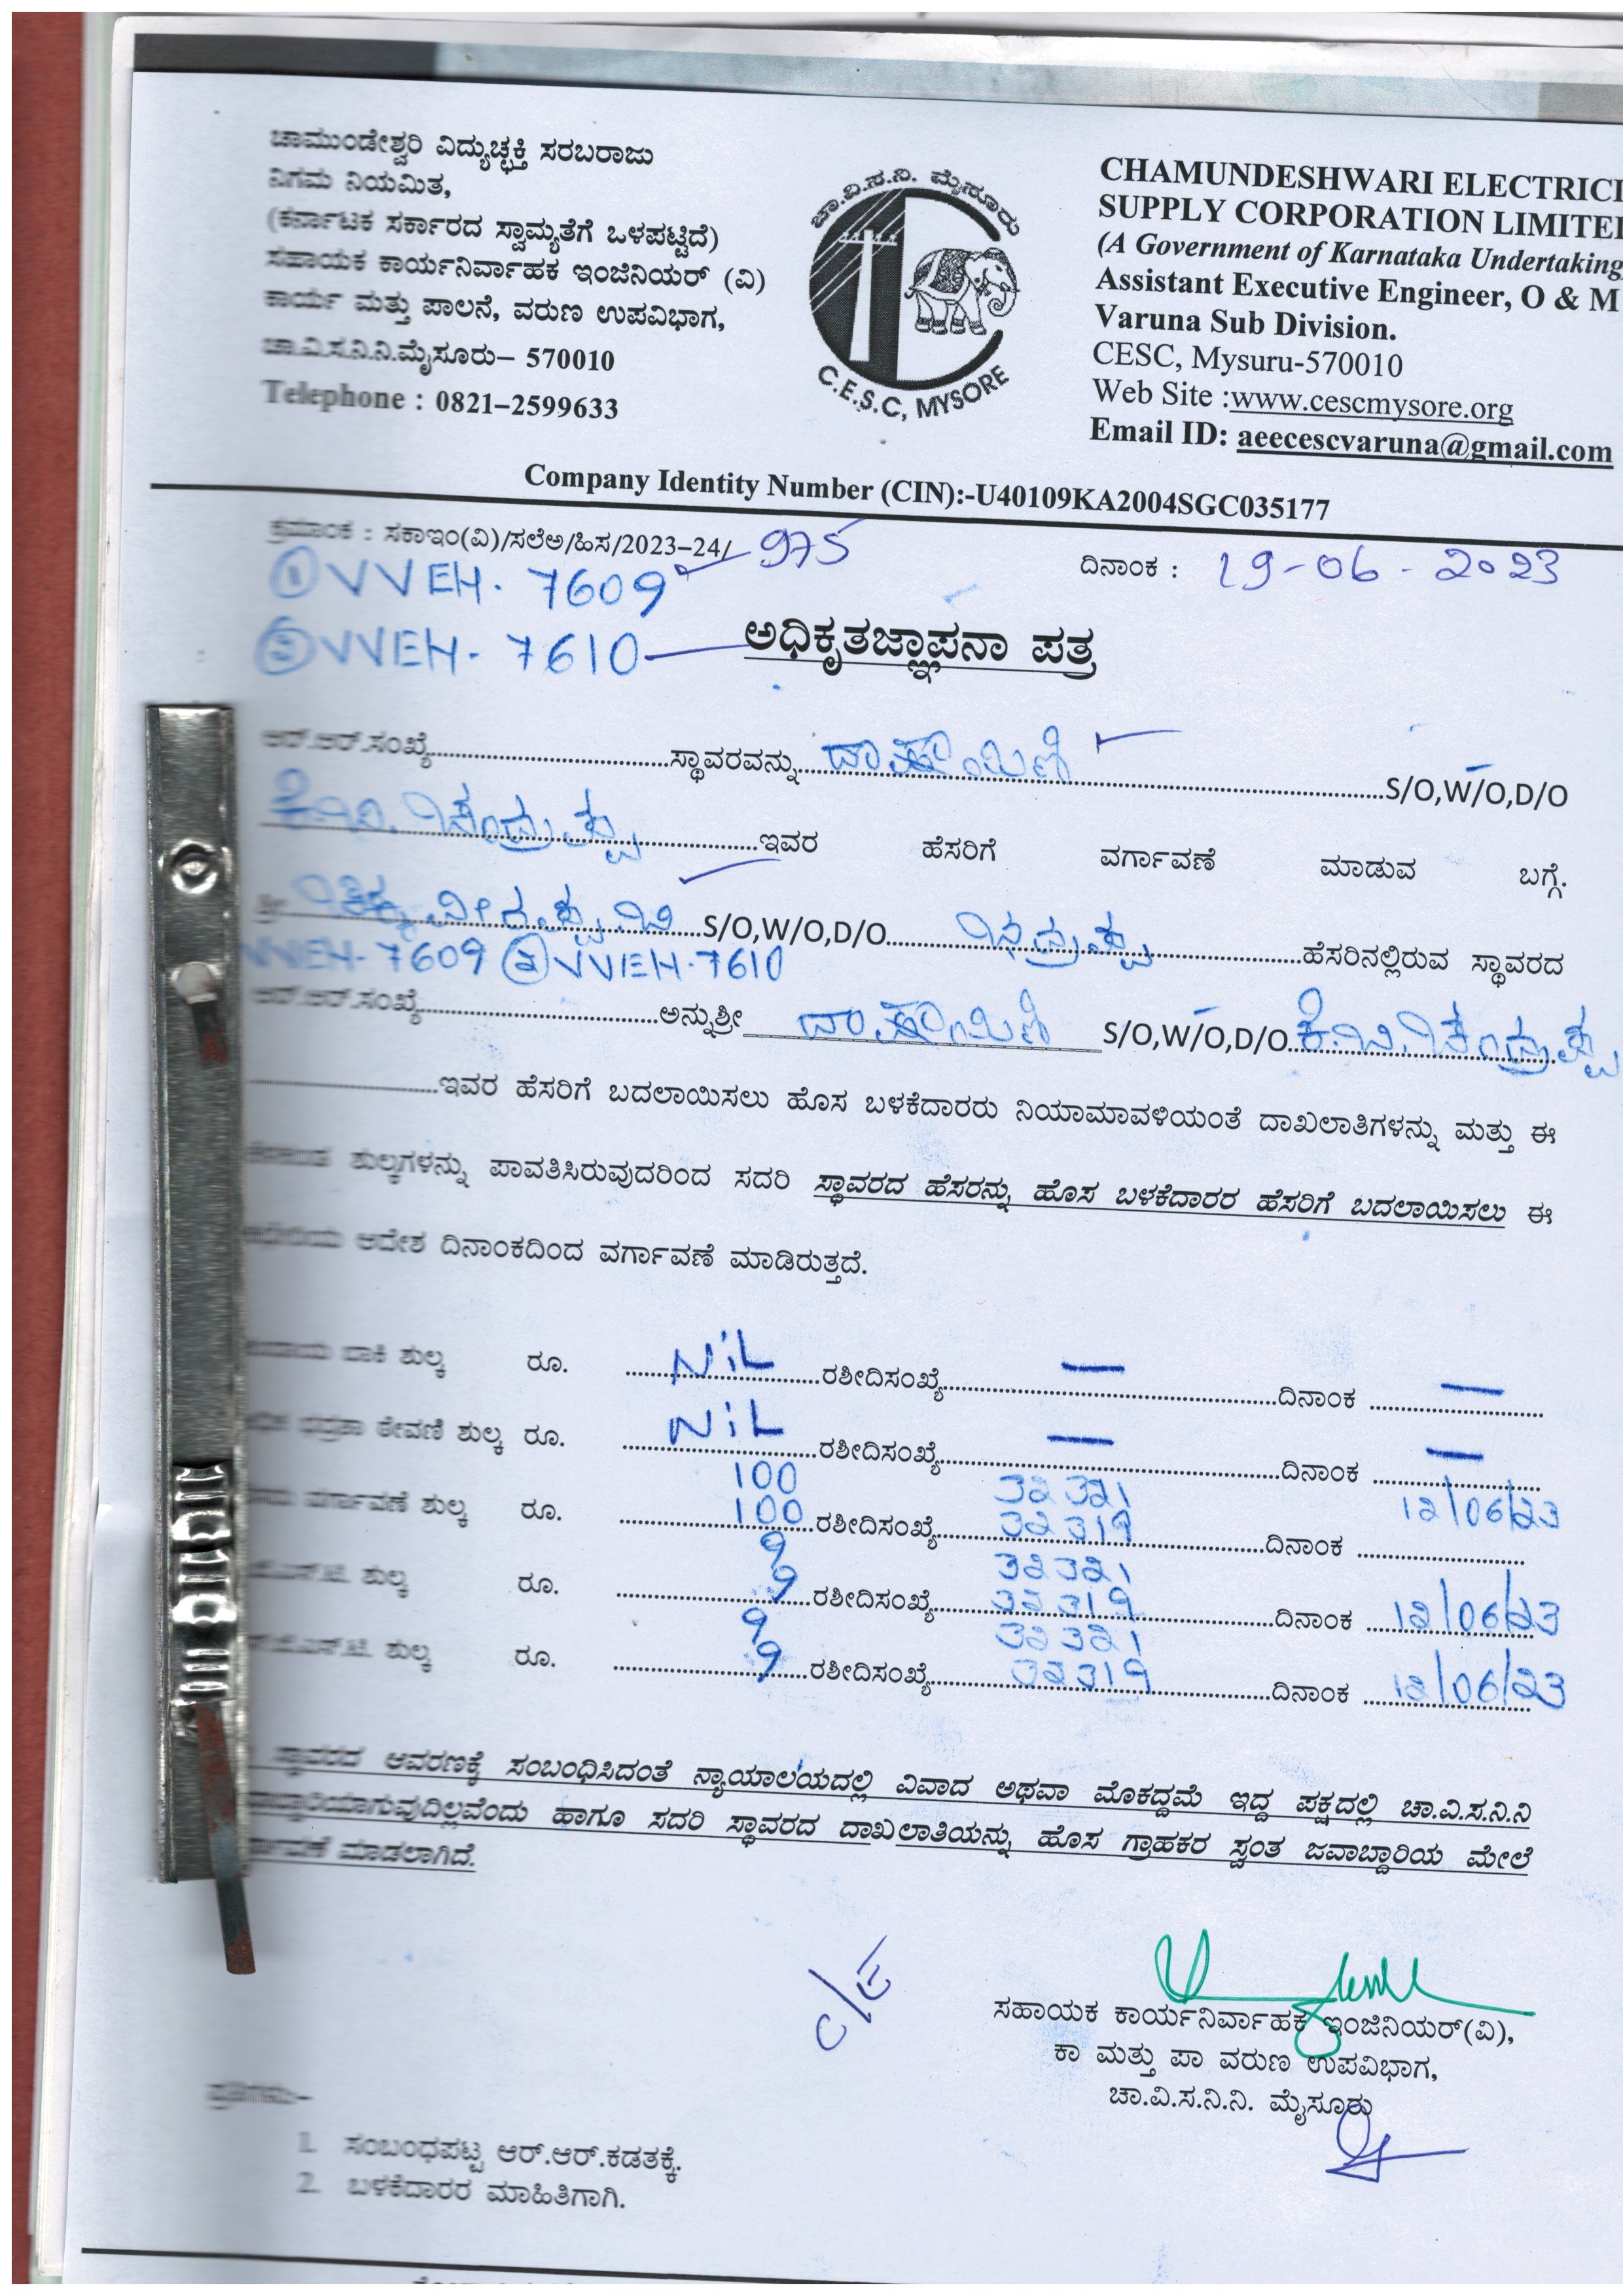 ಚಾಮುಂಡೇಶ್ವರಿ ವಿದ್ಯುಚ್ಛಕ್ತಿ ಸರಬರಾಜು
ನಿಗಮ ನಿಯಮಿತ,
(ಕರ್ನಾಟಕ ಸರ್ಕಾರದ ಸ್ವಾಮ್ಯತೆಗೆ ಒಳಪಟ್ಟಿದೆ)
ಸಹಾಯಕ ಕಾರ್ಯನಿರ್ವಾಹಕ ಇಂಜಿನಿಯರ್ (ವಿ)
ಕಾರ್ಯ ಮತ್ತು ಪಾಲನೆ, ವರುಣ ಉಪವಿಭಾಗ,
ಚಾ.ವಿ.ಸ.ನಿ.ನಿ.ಮೈಸೂರು– 570010
Telephone : 0821–2599633
ಚಾ.ವಿ.ಸ.ನಿ. ಮೈಸೂರು
C.E.S.C, MYSORE
CHAMUNDESHWARI ELECTRICI
SUPPLY CORPORATION LIMITE
(A Government of Karnataka Undertaking
Assistant Executive Engineer, O & M
Varuna Sub Division.
CESC, Mysuru-570010
Web Site :www.cescmysore.org
Email ID: aeecescvaruna@gmail.com
Company Identity Number (CIN):-U40109KA2004SGC035177
ಕ್ರಮಾಂಕ : ಸಕಾಇಂ(ವಿ)/ಸಲೆಅ/ಹಿಸ/2023–24/ 975
ದಿನಾಂಕ : 19-06-2023
① VVEH. 7609
② VVEH- 7610
ಅಧಿಕೃತಜ್ಞಾಪನಾ ಪತ್ರ
ಆರ್.ಆರ್.ಸಂಖ್ಯೆ..........ಸ್ಥಾವರವನ್ನು.......... S/O,W/O,D/O
..........ಇವರ ಹೆಸರಿಗೆ ವರ್ಗಾವಣೆ ಮಾಡುವ ಬಗ್ಗೆ.
ಶ್ರೀ..........S/O,W/O,D/O..........ಹೆಸರಿನಲ್ಲಿರುವ ಸ್ಥಾವರದ
VVEH- 7609 ② VVEH-7610
ಆರ್.ಆರ್.ಸಂಖ್ಯೆ..........ಅನ್ನುಶ್ರೀ S/O,W/O,D/O
..........ಇವರ ಹೆಸರಿಗೆ ಬದಲಾಯಿಸಲು ಹೊಸ ಬಳಕೆದಾರರು ನಿಯಾಮಾವಳಿಯಂತೆ ದಾಖಲಾತಿಗಳನ್ನು ಮತ್ತು ಈ
ಶುಲ್ಕಗಳನ್ನು ಪಾವತಿಸಿರುವುದರಿಂದ ಸದರಿ ಸ್ಥಾವರದ ಹೆಸರನ್ನು ಹೊಸ ಬಳಕೆದಾರರ ಹೆಸರಿಗೆ ಬದಲಾಯಿಸಲು ಈ
ಆದೇಶ ದಿನಾಂಕದಿಂದ ವರ್ಗಾವಣೆ ಮಾಡಿರುತ್ತದೆ.
ಬಾಕಿ ಶುಲ್ಕ ರೂ. NiL ರಶೀದಿಸಂಖ್ಯೆ — ದಿನಾಂಕ —
ಭದ್ರತಾ ಠೇವಣಿ ಶುಲ್ಕ ರೂ. NiL ರಶೀದಿಸಂಖ್ಯೆ — ದಿನಾಂಕ —
100 32321
ವರ್ಗಾವಣೆ ಶುಲ್ಕ ರೂ. 100 ರಶೀದಿಸಂಖ್ಯೆ 32319 ದಿನಾಂಕ 12/06/23
9 32321
ಶುಲ್ಕ ರೂ. 9 ರಶೀದಿಸಂಖ್ಯೆ 32319 ದಿನಾಂಕ 12/06/23
9 32321
ಶುಲ್ಕ ರೂ. 9 ರಶೀದಿಸಂಖ್ಯೆ 32319 ದಿನಾಂಕ 12/06/23
ಸ್ಥಾವರದ ಆವರಣಕ್ಕೆ ಸಂಬಂಧಿಸಿದಂತೆ ನ್ಯಾಯಾಲಯದಲ್ಲಿ ವಿವಾದ ಅಥವಾ ಮೊಕದ್ದಮೆ ಇದ್ದ ಪಕ್ಷದಲ್ಲಿ ಚಾ.ವಿ.ಸ.ನಿ.ನಿ
ಹಾಗೂ ಸದರಿ ಸ್ಥಾವರದ ದಾಖಲಾತಿಯನ್ನು ಹೊಸ ಗ್ರಾಹಕರ ಸ್ವಂತ ಜವಾಬ್ದಾರಿಯ ಮೇಲೆ
ಮಾಡಲಾಗಿದೆ.
ಸಹಾಯಕ ಕಾರ್ಯನಿರ್ವಾಹಕ ಇಂಜಿನಿಯರ್(ವಿ),
ಕಾ ಮತ್ತು ಪಾ ವರುಣ ಉಪವಿಭಾಗ,
ಚಾ.ವಿ.ಸ.ನಿ.ನಿ. ಮೈಸೂರು
ಪ್ರತಿಗಳು:-
1. ಸಂಬಂಧಪಟ್ಟ ಆರ್.ಆರ್.ಕಡತಕ್ಕೆ.
2. ಬಳಕೆದಾರರ ಮಾಹಿತಿಗಾಗಿ.